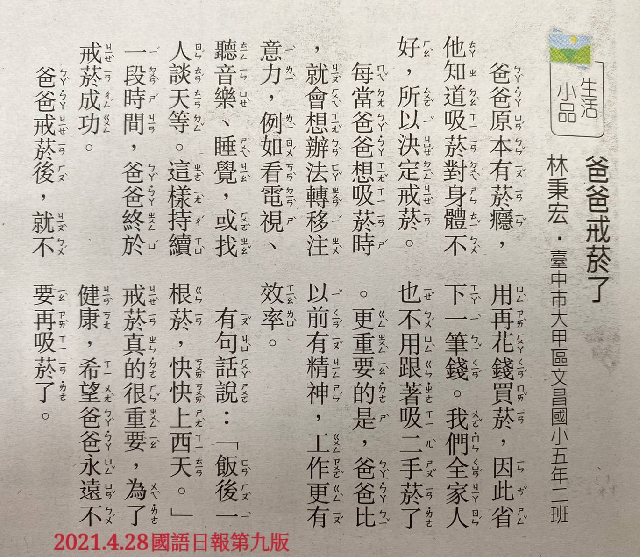 生活
小品
爸爸戒菸了
林秉宏・臺中市大甲區文昌國小五年二班
爸爸原本有菸癮，
他知道吸菸對身體不
好，所以決定戒菸。
每當爸爸想吸菸時
，就會想辦法轉移注
意力，例如看電視、
聽音樂、睡覺，或找
人談天等。這樣持續
一段時間，爸爸終於
戒菸成功。
爸爸戒菸後，就不
用再花錢買菸，因此省
下一筆錢。我們全家人
也不用跟著吸二手菸了
。更重要的是，爸爸比
以前有精神，工作更有
效率。
有句話說：「飯後一
根菸，快快上西天。」
戒菸真的很重要，為了
健康，希望爸爸永遠不
要再吸菸了。
2021.4.28國語日報第九版